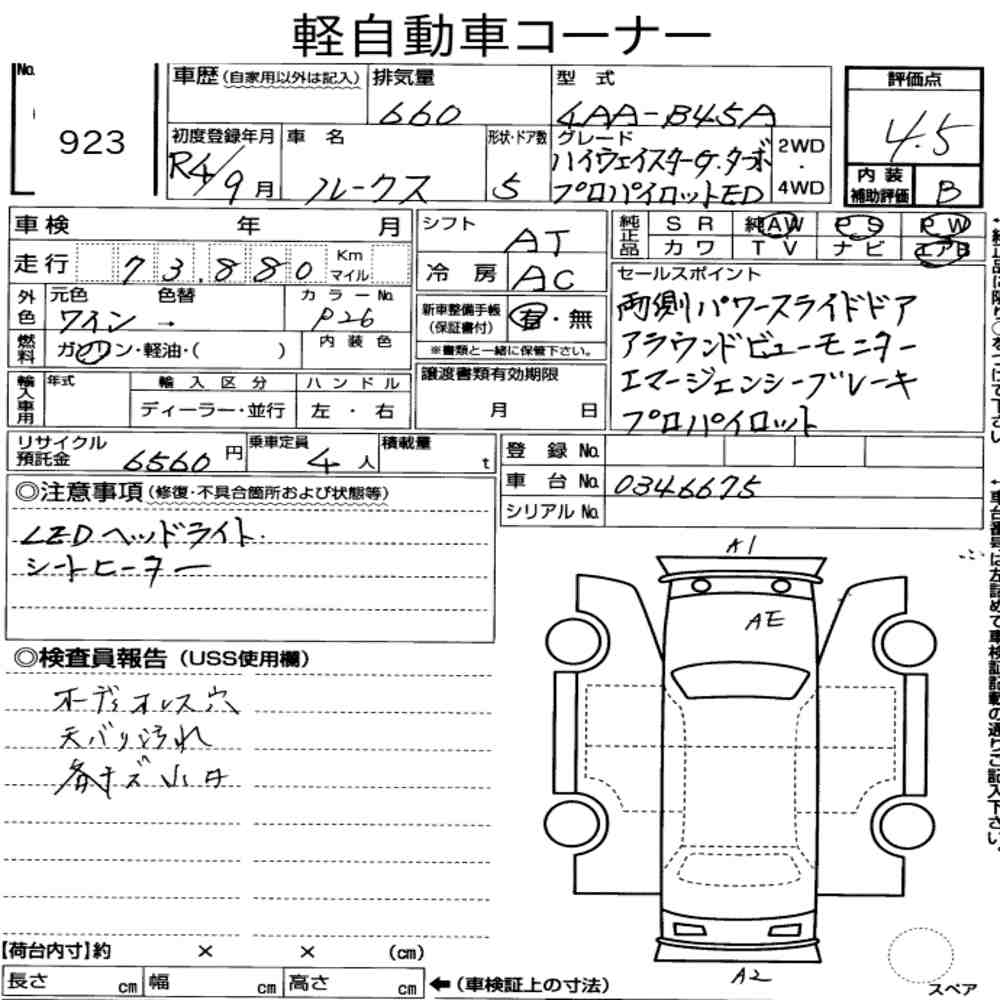 軽自動車コーナー
No. 923
車歴(自家用以外は記入)
排気量
660
型式
4AA-B45A
評価点
4.5
内装補助評価
B
初度登録年月
R4/9月
車名
ルークス
形状・ドア数
5
グレード
ハイウェイスターG.ターボ
プロパイロットED
2WD
・
4WD
車検 年 月
走行 73.880 Km マイル
外色
元色 色替
ワイン →
カラーNo.
P26
燃料
ガソリン・軽油・( )
内装色
輸入車用
年式
輸入区分
ディーラー・並行
ハンドル
左・右
シフト
AT
冷房
AC
新車整備手帳
(保証書付)
有・無
※書類と一緒に保管下さい。
譲渡書類有効期限
月 日
純正品
SR 純AW PS PW
カワ TV ナビ エアB
セールスポイント
両側パワースライドドア
アラウンドビューモニター
エマージェンシーブレーキ
プロパイロット
リサイクル預託金
6560円
乗車定員
4人
積載量
t
登録No.
車台No. 0346675
シリアルNo.
◎注意事項(修復・不具合箇所および状態等)
LEDヘッドライト
シートヒーター
◎検査員報告(USS使用欄)
オーディオレス穴
天バリ汚れ
各キズ小
A1
AE
A2
スペア
【荷台内寸】約 × × (cm)
長さ cm 幅 cm 高さ cm
←(車検証上の寸法)
↑車台番号は左詰めで車検証記載の通りご記入下さい。